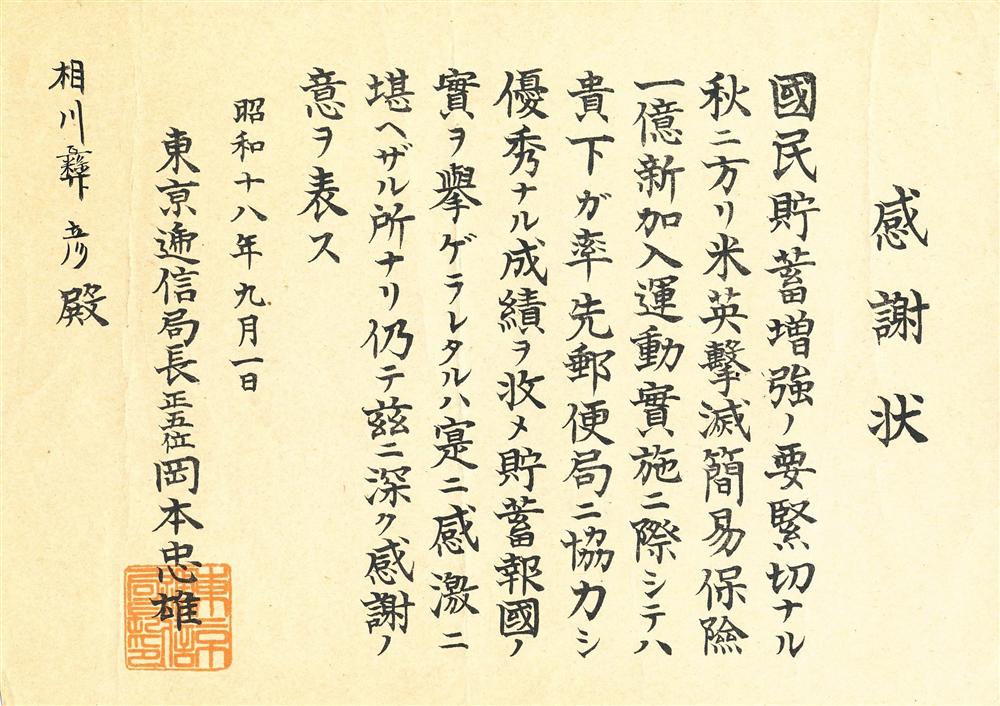 感謝状
國民貯蓄増強ノ要緊切ナル
秋ニ方リ米英擊滅簡易保險
一億新加入運動實施ニ際シテハ
貴下ガ率先郵便局ニ協力シ
優秀ナル成績ヲ收メ貯蓄報國ノ
實ヲ擧ゲラレタルハ寔ニ感激ニ
堪ヘザル所ナリ仍テ茲ニ深ク感謝ノ
意ヲ表ス
昭和十八年九月一日
東京逓信局長正五位岡本忠雄
相川彝彦殿